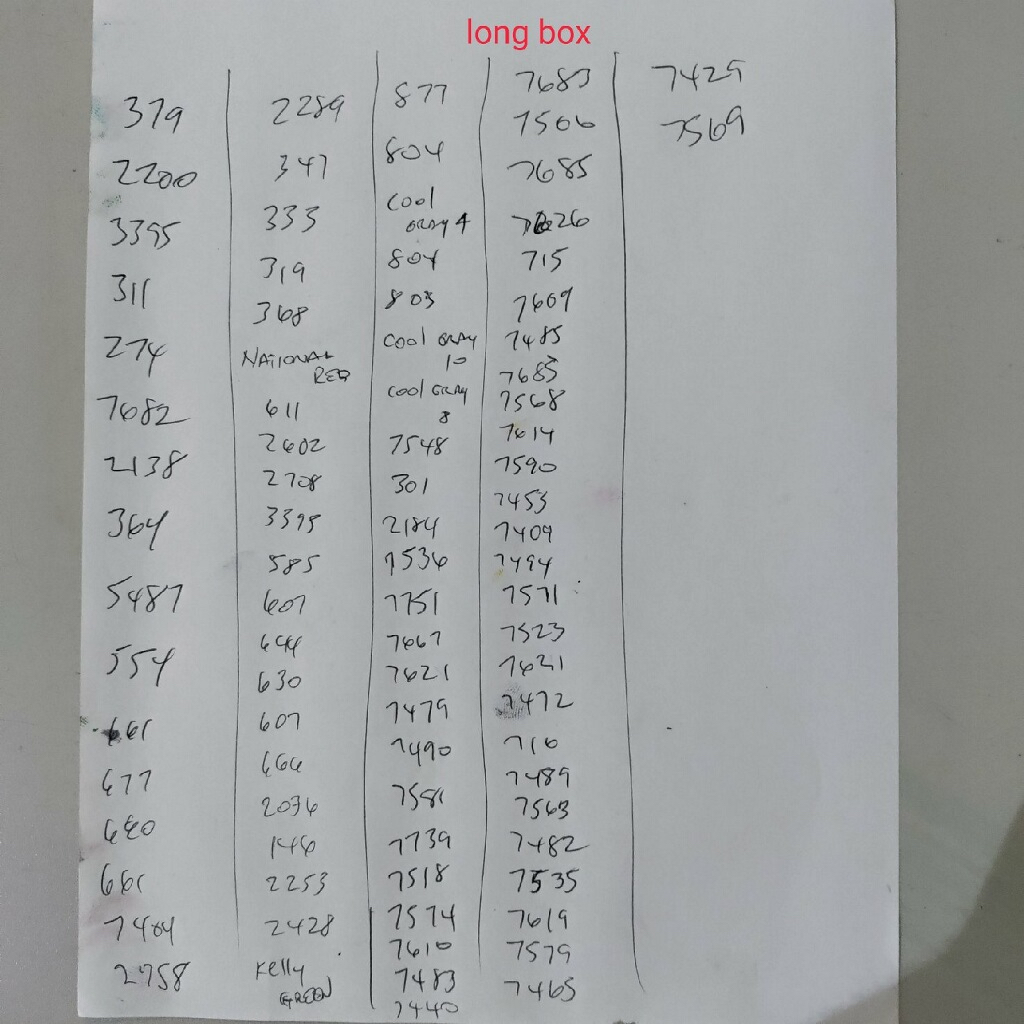 long box
379
2200
3395
311
274
7682
2138
364
5487
554
661
677
680
661
7404
2758
2289
347
333
319
368
NATIONAL
RED
611
2602
2708
3395
585
607
644
630
607
666
2036
146
2253
2428
Kelly
GREEN
877
804
COOL
GRAY 4
804
803
COOL GRAY
10
COOL GRAY
8
7548
301
2184
7536
7751
7667
7621
7479
7490
7581
7739
7518
7574
7610
7483
7440
7683
7506
7685
7626
715
7609
7485
7685
7568
7614
7590
7453
7409
7494
7571
7523
7621
7472
716
7489
7563
7482
7535
7619
7579
7465
7429
7569